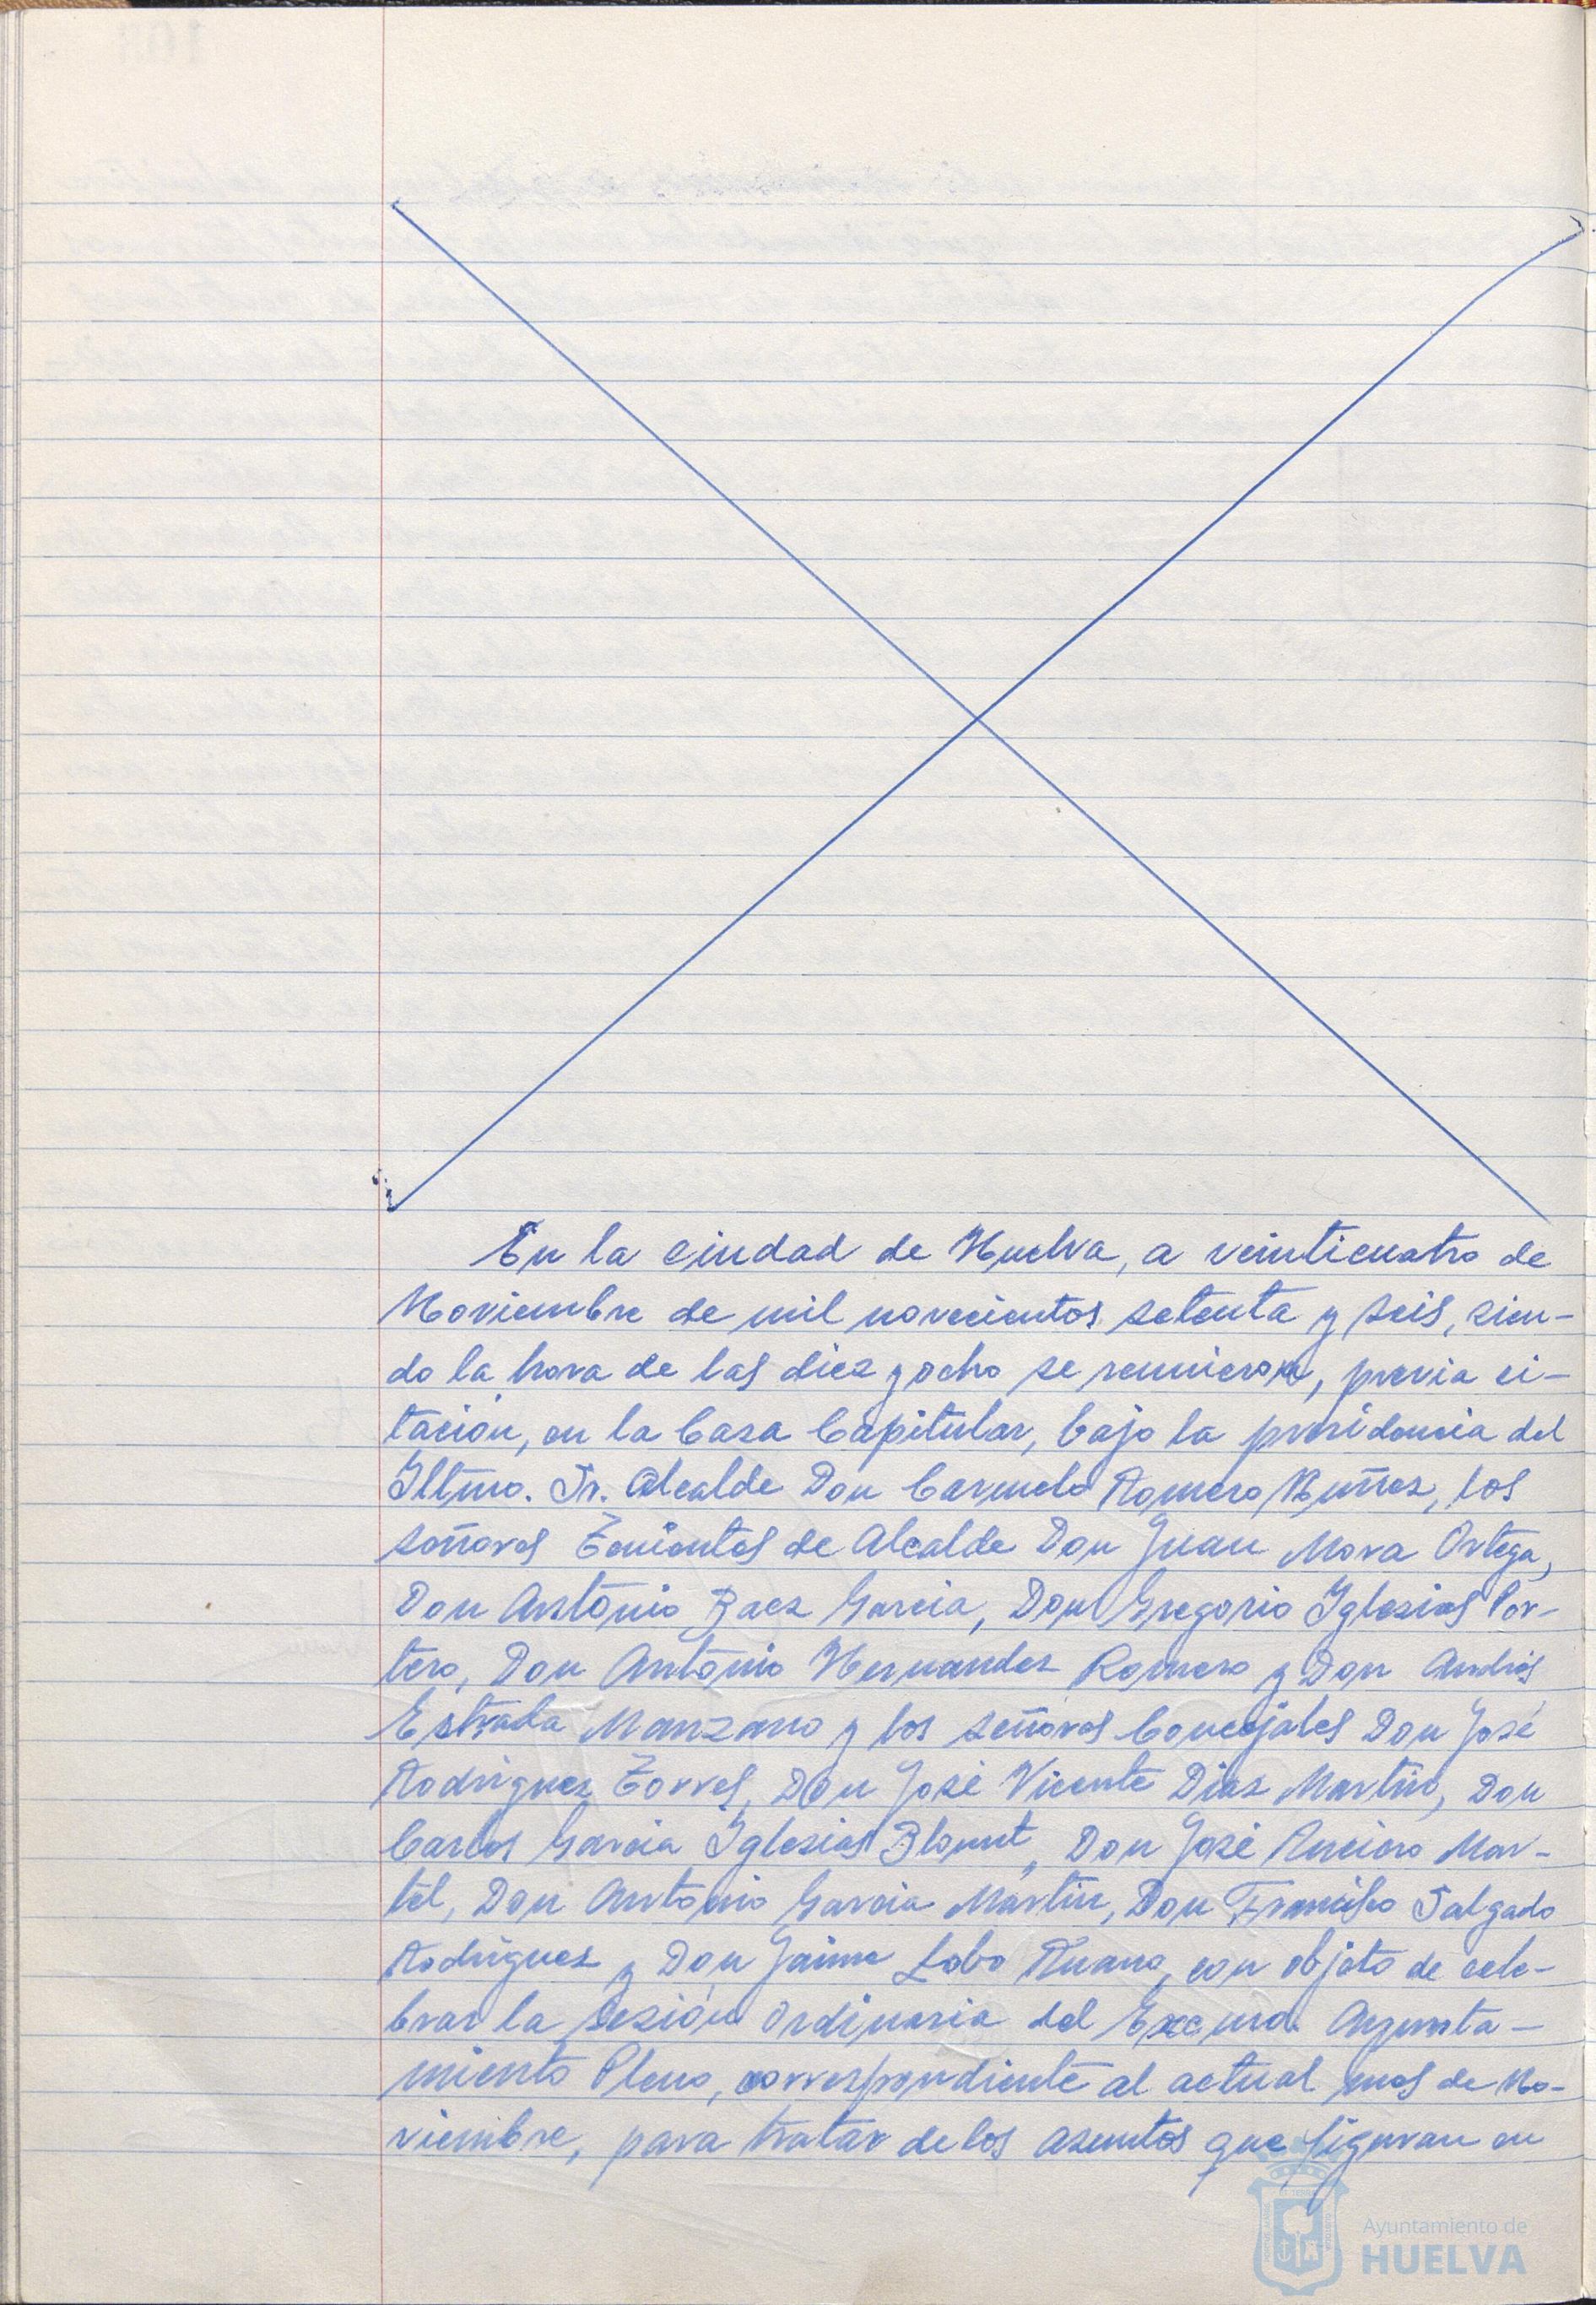 En la ciudad de Huelva, a veinticuatro de
Noviembre de mil novecientos setenta y seis, sien-
do la hora de las diez y ocho se reunieron, previa ci-
tación, en la Casa Capitular, bajo la presidencia del
Iltmo. Sr. Alcalde Don Carmelo Romero Núñez, los
señores Tenientes de Alcalde Don Juan Mora Ortega,
Don Antonio Baez Garcia, Don Gregorio Iglesias Por-
tero, Don Antonio Hernandez Romero y Don Andrés
Estrada Manzano y los señores Concejales Don José
Rodriguez Torres, Don José Vicente Diaz Martin, Don
Carlos Garcia Iglesias Blount, Don José Mar-
tel, Don Antonio Garcia Martin, Don Francisco Salgado
Rodriguez y Don Jaime Lobo Ruano, con objeto de cele-
brar la sesión Ordinaria del Excmo. Ayunta-
miento Pleno, correspondiente al actual mes de No-
viembre, para tratar de los asuntos que figuran en
Ayuntamiento de
HUELVA